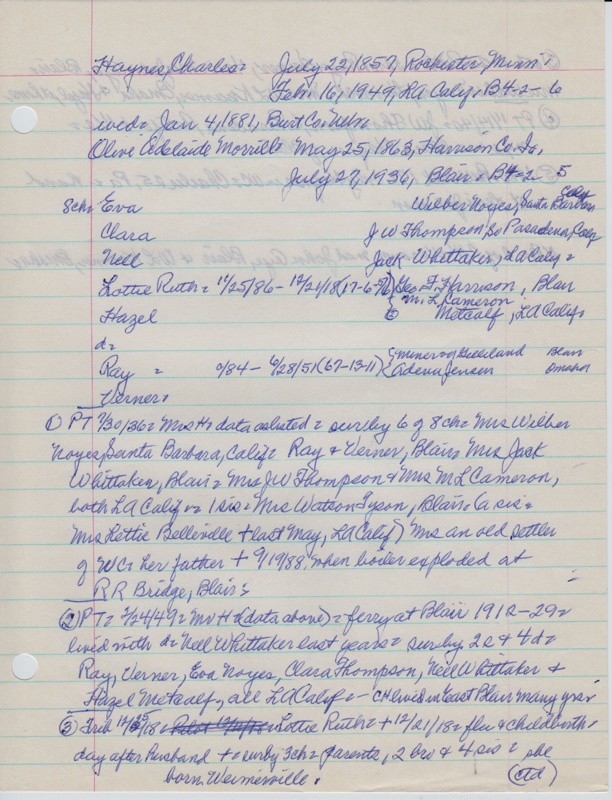 Haynes, Charles= July 22, 1857, Rochester, Minn
Feb. 16, 1949, LA Calif= B4-2-6
wed= Jan 4, 1881, Burt Co. Nebr=
Olive Adelaide Morrill= May 25, 1863, Harrison Co. Ia,
July 27, 1936, Blair= B4=2-5
8ch= Eva Wilber Noyes, Santa Barbara Calif
Clara J W Thompson, So Pasadena, Calif
Nell Jack Whittaker, LA Calif=
Lottie Ruth= 12/21/18 Geo F Harrison, Blair
Hazel M. L. Cameron
Metcalf, LA Calif=
d=
Ray = /84 - 6/28/51 (67-13-11) Minerva Gilliland Blair
Adena Jensen Omaha
Verner=
① PT 7/30/36= Mrs H= data as listed= surv by 6 of 8ch= Mrs Wilber
Noyes, Santa Barbara, Calif= Ray & Verner, Blair= Mrs Jack
Whittaker, Blair= Mrs J W Thompson & Mrs M L Cameron,
both LA Calif= 1 sis= Mrs Watson Tyson, Blair= (a sis=
Mrs Lettie Belleville + last May, LA Calif) Mrs an old settler
of WC= her father + 9/19/88, when boiler exploded at
RR Bridge, Blair=
② PT= 2/24/49= Mr H= (data above)= ferry at Blair 1912-29=
lived with d= Nell Whittaker last years= surv by 2s & 4d=
Ray, Verner, Eva Noyes, Clara Thompson, Nell Whittaker &
Hazel Metcalf, all LA Calif= - CH lived in East Blair many yrs=
③ Trib 12/25/18= Lottie Ruth= + 12/21/18= flu & childbirth=
day after husband += surv by 3ch= parents, 2 bro & 4 sis= she
born
(ctd)